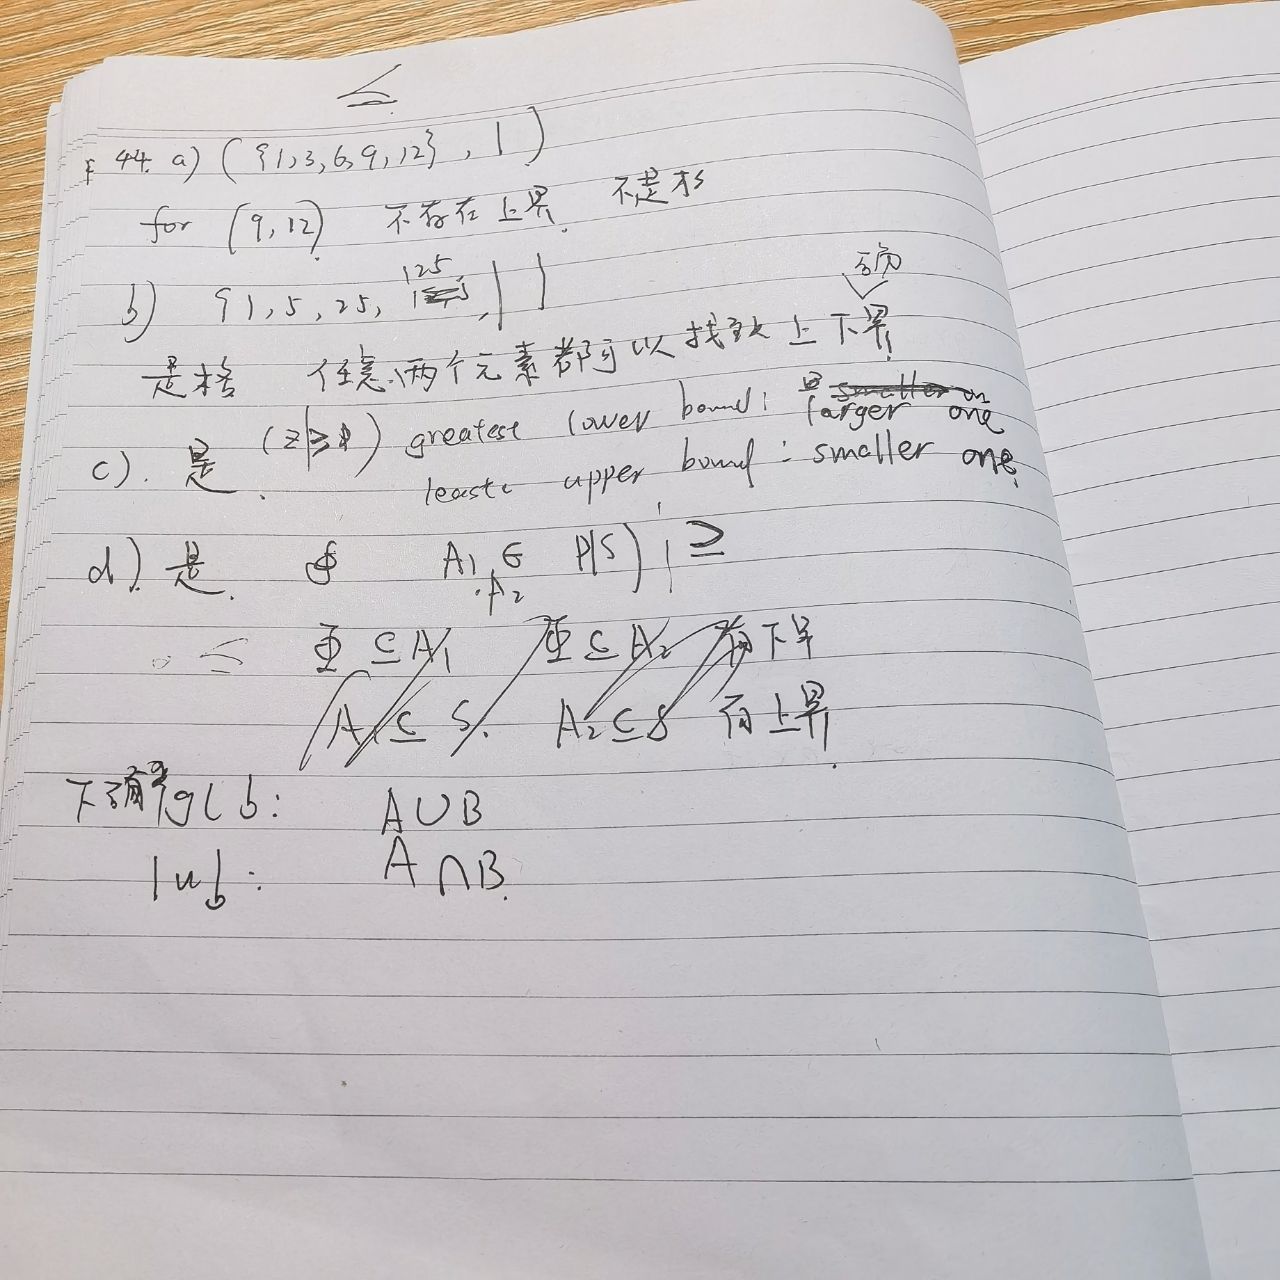 ≤
44. a) ({1,3,6,9,12}, |)
for (9,12) 不存在上界. 不是格
b) {1, 5, 25, 125, |)
是格 任意两个元素都可以找到上下确界
c). 是. (Z, ≥) greatest lower bound: larger one
least upper bound: smaller one.
d). 是. A₁, A₂ ∈ P(S), ⊇
Φ ⊆ A₁ Φ ⊆ A₂ 有下界
A₁ ⊆ S. A₂ ⊆ S 有上界.
下确界 glb: A∪B
lub: A∩B.